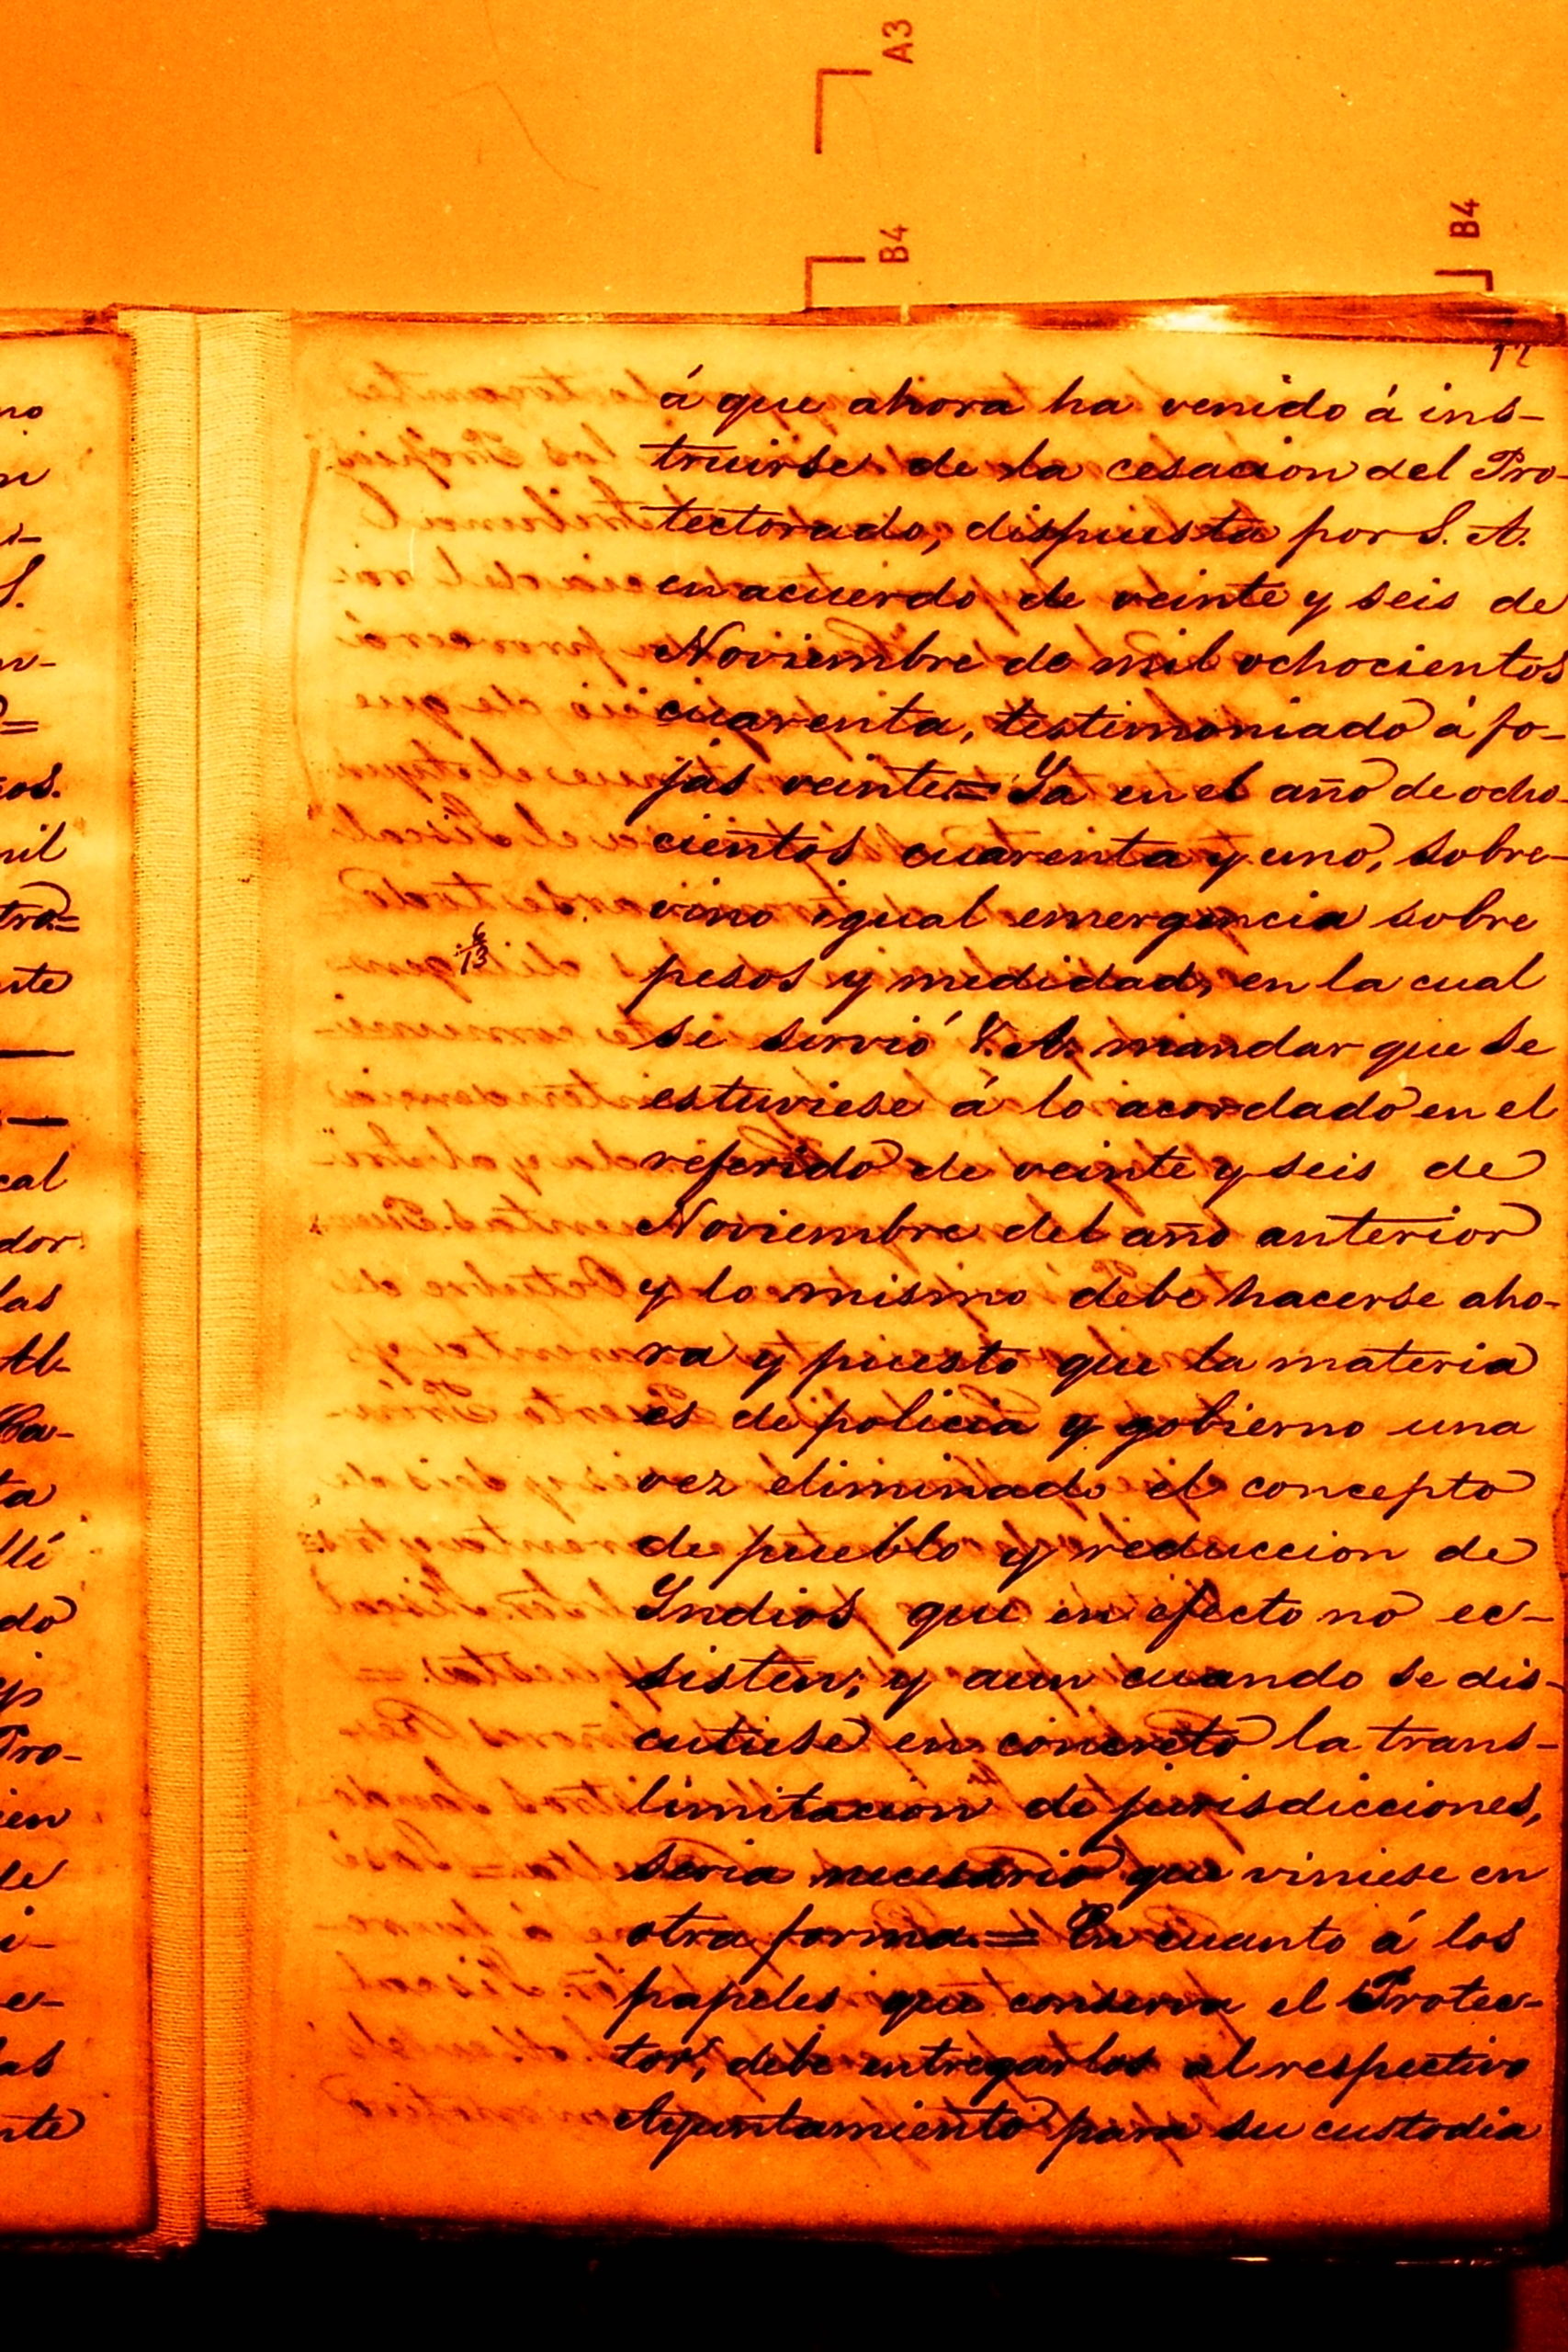 A3
B4
B4
12
á que ahora ha venido á ins-
truirse de la cesacion del Pro-
tectorado, dispuesta por S. A.
en acuerdo de veinte y seis de
Noviembre de mil ochocientos
cuarenta, testimoniado á fo-
jas veinte.= Ya en el año de ocho-
cientos cuarenta y uno, sobre-
vino igual emergencia sobre
pesos y medidad, en la cual
se sirvió V. A. mandar que se
estuviese á lo acordado en el
referido de veinte y seis de
Noviembre del año anterior
y lo mismo debe hacerse aho-
ra y puesto que la materia
es de policia y gobierno una
vez eliminado el concepto
de pueblo y reduccion de
Yndios que en efecto no ec-
sisten; y aun cuando se dis-
cutiese en concreto la trans-
limitacion de jurisdicciones,
seria necesario que viniese en
otra forma.= En cuanto á los
papeles que conserva el Protec-
tor, debe entregarlos al respectivo
Ayuntamiento para su custodia